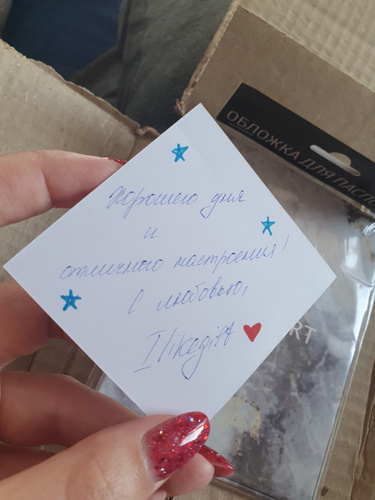 ОБЛОЖКА ДЛЯ ПАСПО
Хорошего дня
и
отличного настроения!
С любовью,
Ilikegift
RT